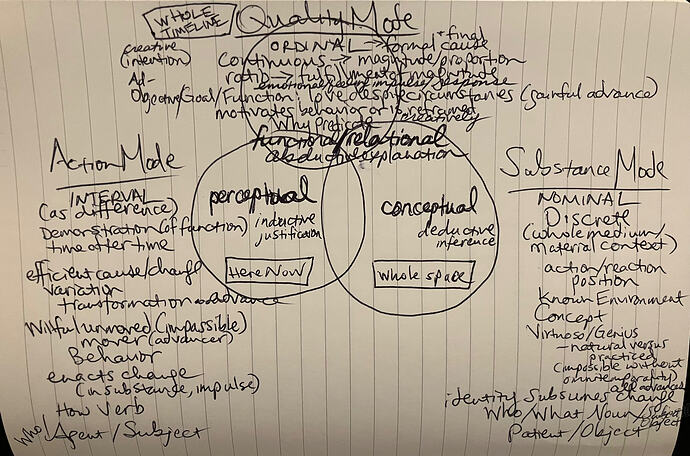 WHOLE TIMELINE
Quality Mode
creative (intention)
ORDINAL → formal + final cause
Continuous → magnitude/proportion
ratio → fulfillment of magnitude
emotional response
Objective/Goal/Function: love despite circumstances (gainful advance)
motivates behavior or is
creatively
Why Predicate
functional/relational
abductive explanation
Action Mode
INTERVAL
(as difference)
Demonstration (of function)
time after time
efficient cause/change
variation
transformation
Willful unmoved (impassible)
mover (advancer)
Behavior
enacts change
(in substance, impulse)
How Verb
Who Agent/Subject
perceptual
inductive
justification
Here Now
conceptual
deductive
inference
Whole space
Substance Mode
NOMINAL
Discrete
(whole medium/
material context)
action/reaction
position
Known Environment
Concept
Virtuoso/Genius
– natural versus
practiced
(impossible without
omnitemporality)
identity subsumes change
Who/What Noun
Patient/Object